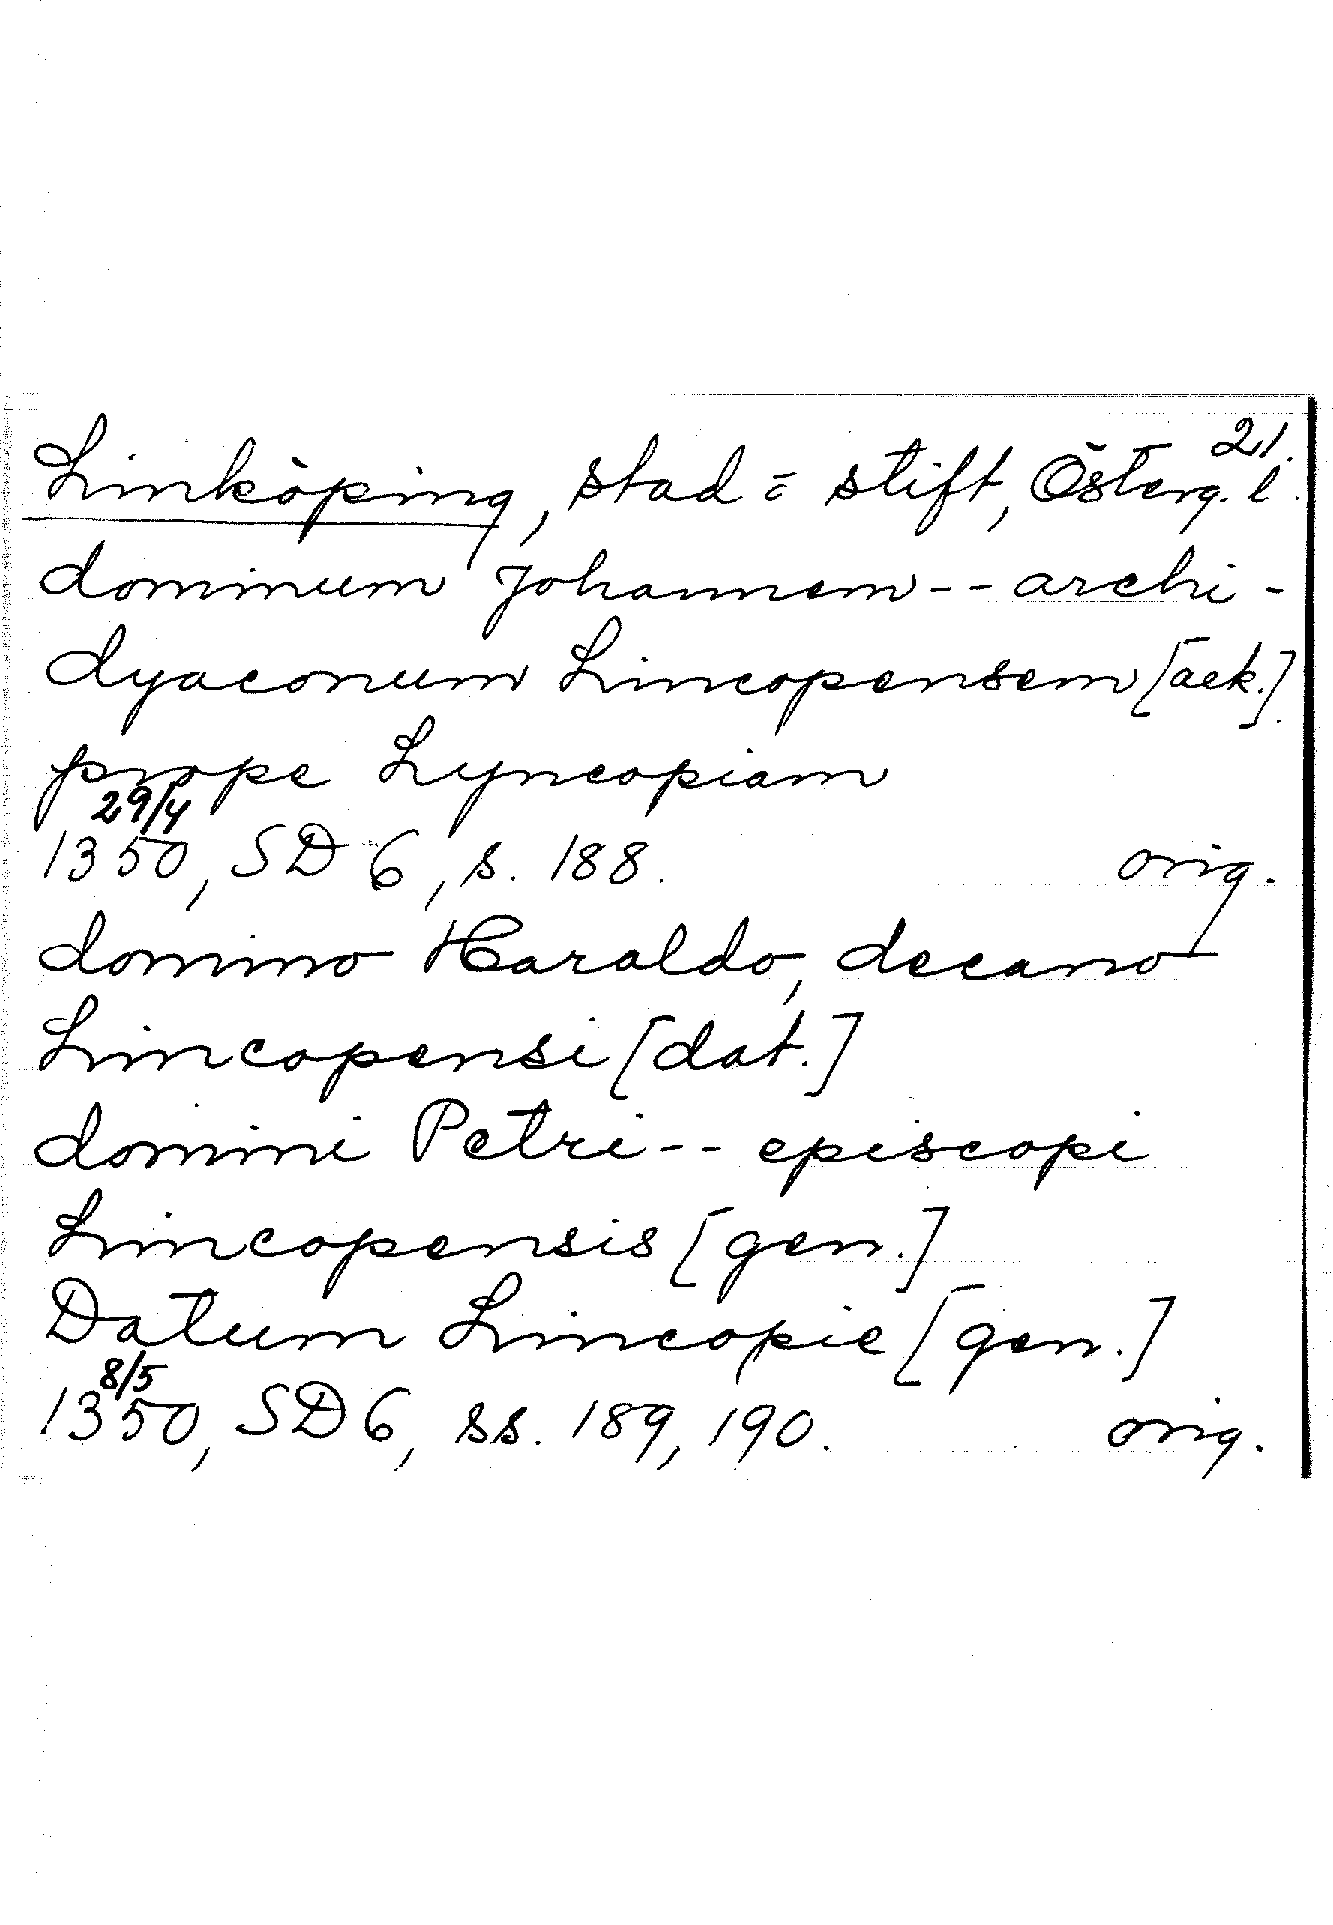 21.
Linköping, stad o. stift, Österg. l.
dominum Johannem -- archi-
dyaconum Lincopensem [ack.]
prope Lyncopiam
29/4
1350, SD 6, s. 188. orig.
domino Haraldo, decano
Lincopensi [dat.]
domini Petri -- episcopi
Lincopensis [gen.]
Datum Lincopie [gen.]
8/5
1350, SD 6, ss. 189, 190. orig.